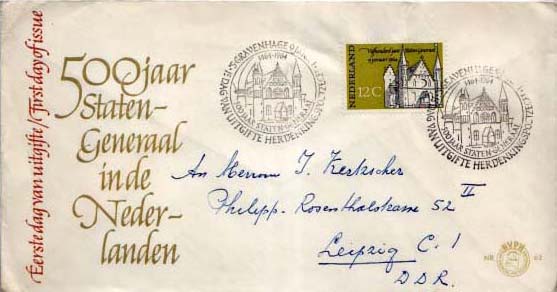 Eerste dag van uitgifte / First day of issue
500 jaar
Staten-
Generaal
in de
Neder-
landen
'S-GRAVENHAGE 9
1464-1964
500 JAAR STATEN-GENERAAL
EERSTE DAG VAN UITGIFTE HERDENKINGSPOSTZEGEL
NEDERLAND
Vijfhonderd jaar Staten-Generaal
9 januari 1964
12 C
'S-GRAVENHAGE 9
1464-1964
500 JAAR STATEN-GENERAAL
DAG VAN UITGIFTE HERDENKINGSPOSTZEGEL
An Herrn J. Kertzscher
Philipp-Rosenthalstrasse 52 II
Leipzig C. 1
D D R.
NVPH
NR 62